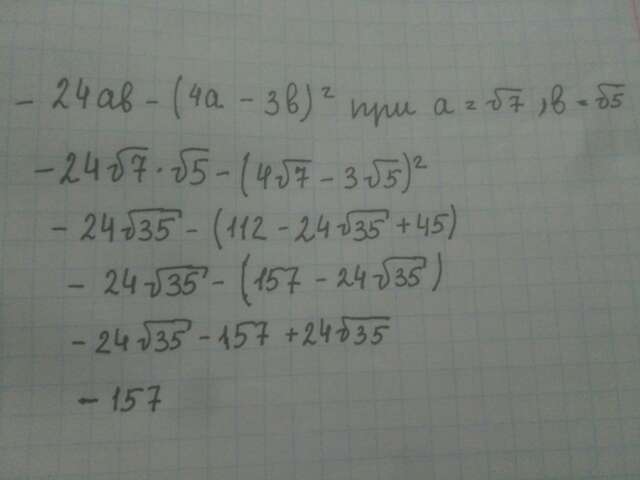 - 24ав - (4а - 3в)² при а = √7, в = √5
- 24√7 · √5 - (4√7 - 3√5)²
- 24√35 - (112 - 24√35 + 45)
- 24√35 - (157 - 24√35)
- 24√35 - 157 + 24√35
- 157